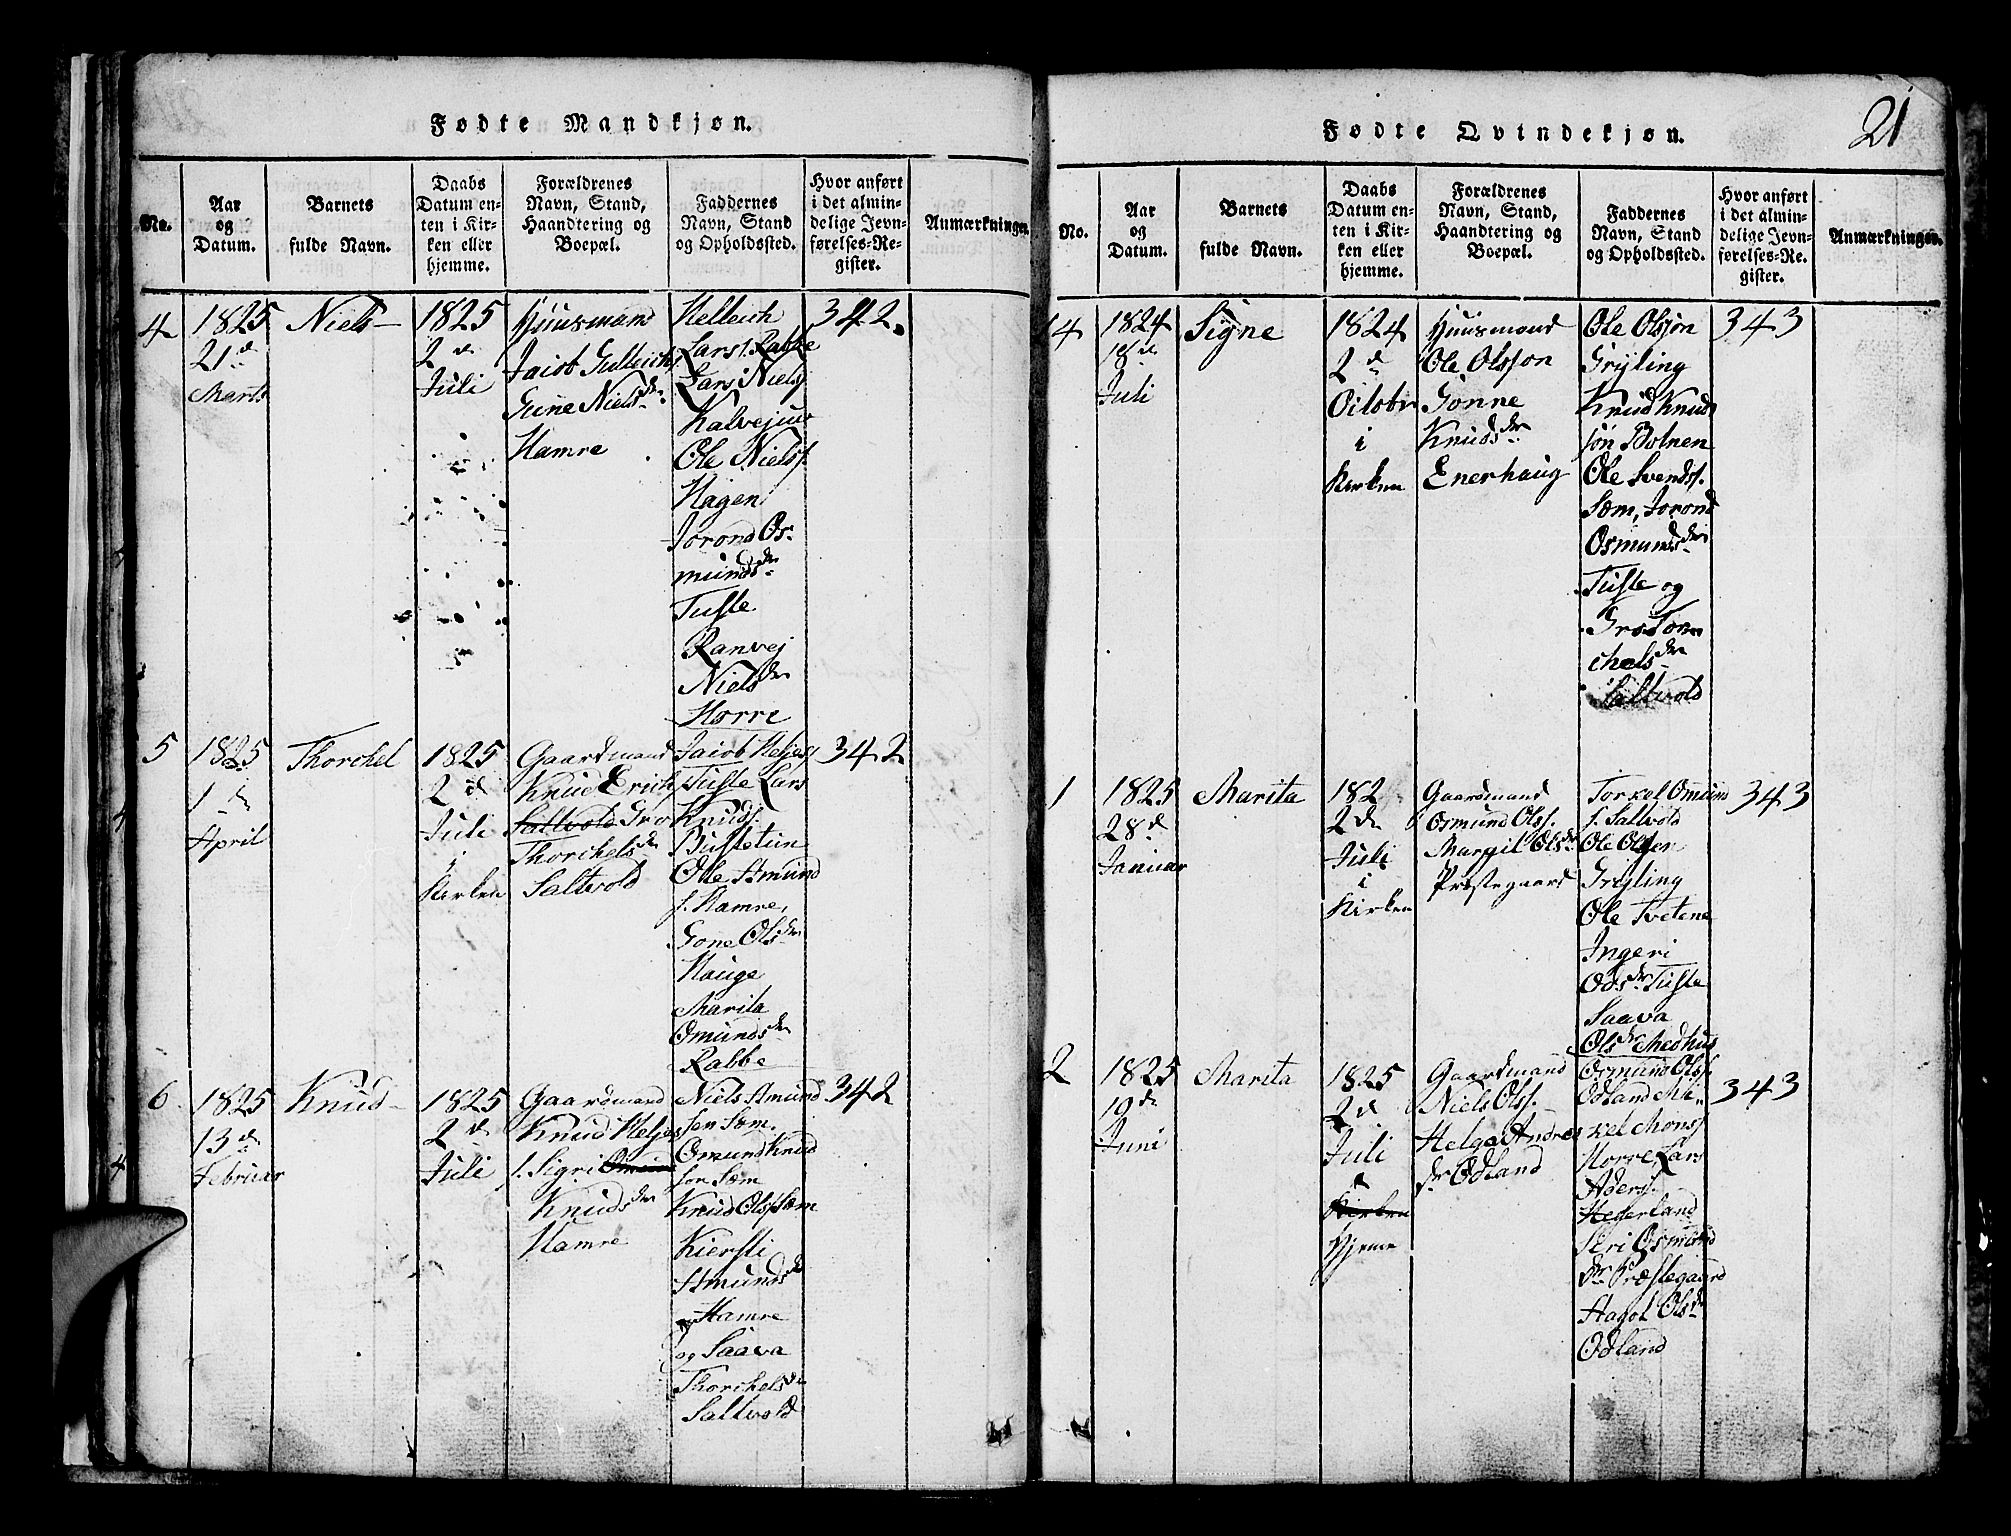 Fødte Mandkjøn.
No.
Aar
og
Datum.
Barnets
fulde Navn.
Daabs
Datum en-
ten i Kir-
ken eller
hjemme.
Forældrenes
Navn, Stand,
Haandtering og
Boepæl.
Faddernes
Navn, Stand
og Opholdssted.
Hvor anført
i det almin-
delige Jevn-
førelses-Re-
gister.
Anmærkninger
4
1825
21 d
Marts
Niels
1825
2 d
Juli
Huusmand
Jacob
Gune Niels dr
Hamre
Helleich
Lars s. Rabbe
Lars Niels
Ole Niels s.
Hagen
Jorond Os-
munds dr
Tufte
Ranvej
Niels dr
Horre
342.
5
1825
1 d
April
Thorchel
1825
2 d
Juli
i
Kirken
Gaardmand
Knud Erich
Saltvold Gro
Thorchels dr
Saltvold
Jacob Heljes
Tufte Lars
Knuds.
Bustetun
Ole Amund
s. Hamre,
Gone Ols dr
Hauge
Marita
Omunds dr
Rabbe
342
6
1825
13 d
Februar
Knud
1825
2 d
Juli
Gaardmand
Knud Heljes
s. Sigri
Knuds dr
Hamre
Niels Amund
sen Sæm.
Omund Knud
son Sæm
Knud Ols s Sæm
Kiersti
Amunds d
Hamre
og Saava
Thorchels d
Saltvold
342
Fødte Qvindekjøn.
21
No.
Aar
og
Datum.
Barnets
fulde Navn.
Daabs
Datum en-
ten i Kir-
ken eller
hjemme.
Forældrenes
Navn, Stand,
Haandtering og
Boepæl.
Faddernes
Navn, Stand
og Opholdssted.
Hvor anført
i det almin-
delige Jevn-
førelses-Re-
gister.
Anmærkninger.
14
1824
18 de
Juli
Signe
1824
2 d
Octobr
i
Kirken
Huusmand
Ole Olsson
Gonne
Knuds dr
Enerhaug
Ole Olsson
Gryting
Knud Knud
søn Botnen
Ole Svends s.
Sæm, Jorond
Osmunds dr
Tufte og
Gro Tor
chels dr
Saltvold
343
1
1825
28 d
Januar
Marita
182
2 d
Juli
i
Kirken
Gaardmand
Osmund Ols s.
Margit Ols dr
Prestegaard
Torkel Omund
s. Saltvold
Ole Olsen
Gryting
Ole Tvetene
Ingeri
Ods dr Tufte
Saava
Ols dr Medhus
343
2
1825
19 d
Juni
Marita
1825
2 d
Juli
i
Kirken
Hjeme
Gaardmand
Niels Ols s.
Helga Andres
dr Odland
Osmund Ols s.
Odland Mi-
kel Mons s
Horre Lars
Aders s.
Hegerland
Siri Osmund
dr Præstegaard
Aagot Ols d
Odland
343